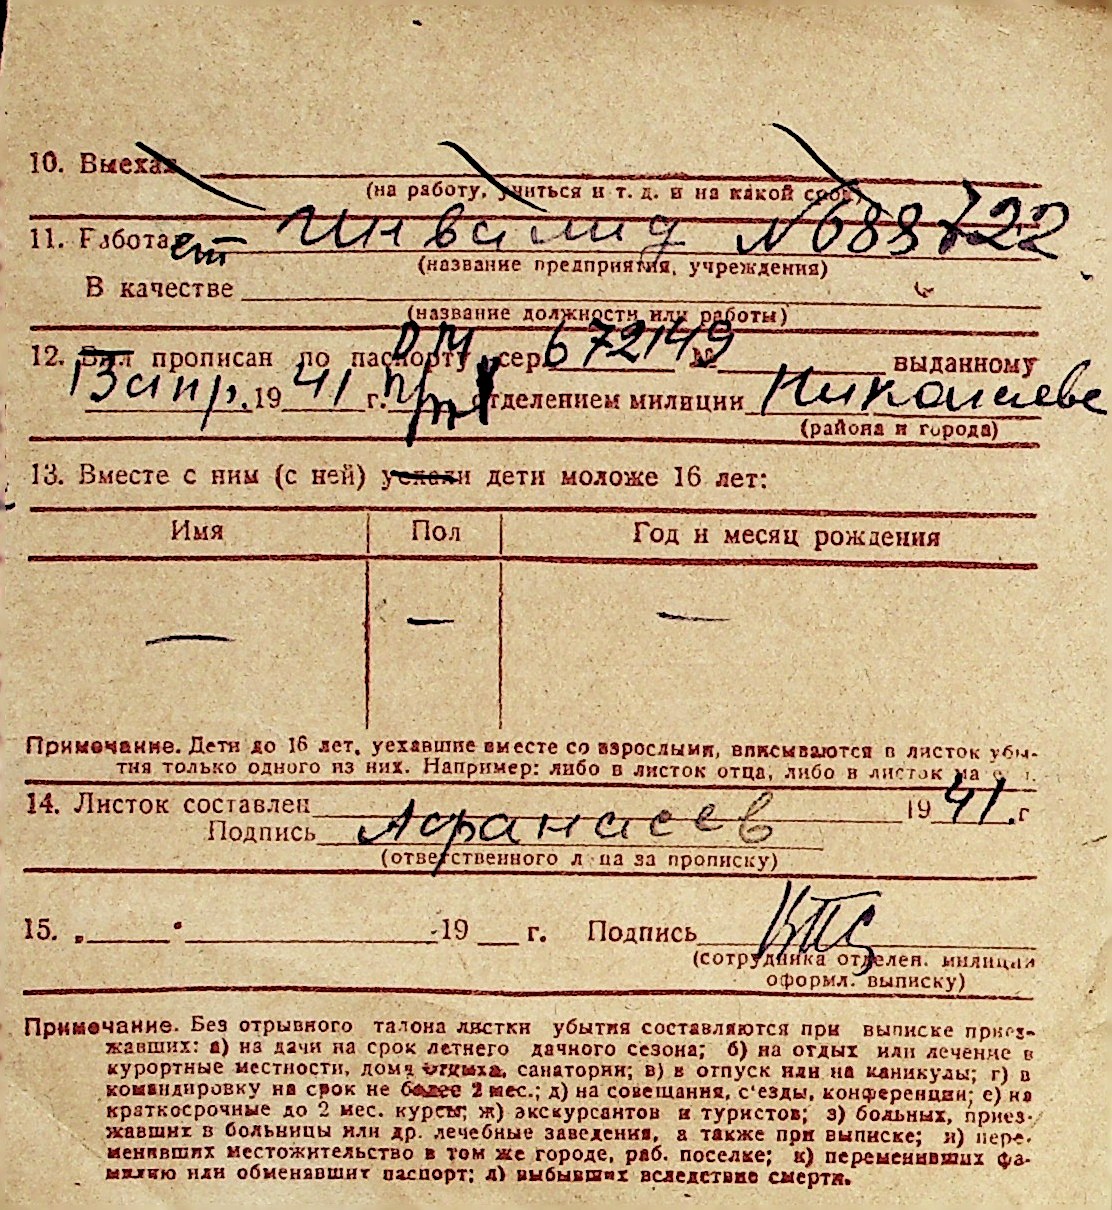 10. Выехал
(на работу, учиться и т. д. и на какой срок)
11. Работает Инвалид №688722
(название предприятия, учреждения)
В качестве
(название должности или работы)
12. Был прописан по паспорту сер. 672149 № выданному
13 апр. 1941 г. отделением милиции Николаеве
(района и города)
13. Вместе с ним (с ней) уехали дети моложе 16 лет:
Имя Пол Год и месяц рождения
— — —
Примечание. Дети до 16 лет, уехавшие вместе со взрослыми, вписываются в листок убы-
тия только одного из них. Например: либо в листок отца, либо в листок
14. Листок составлен 1941.г
Подпись Афанасев
(ответственного лица за прописку)
15. „ " 19 г. Подпись
(сотрудника отделен. милиции
оформл. выписку)
Примечание. Без отрывного талона листки убытия составляются при выписке приез-
жавших: а) на дачи на срок летнего дачного сезона; б) на отдых или лечение в
курортные местности, дома отдыха, санатории; в) в отпуск или на каникулы; г) в
командировку на срок не более 2 мес.; д) на совещания, с'езды, конференции; е) на
краткосрочные до 2 мес. курсы; ж) экскурсантов и туристов; з) больных, приез-
жавших в больницы или др. лечебные заведения, а также при выписке; и) пере-
менивших местожительство в том же городе, раб. поселке; к) переменивших фа-
милию или обменявших паспорт; л) выбывших вследствие смерти.